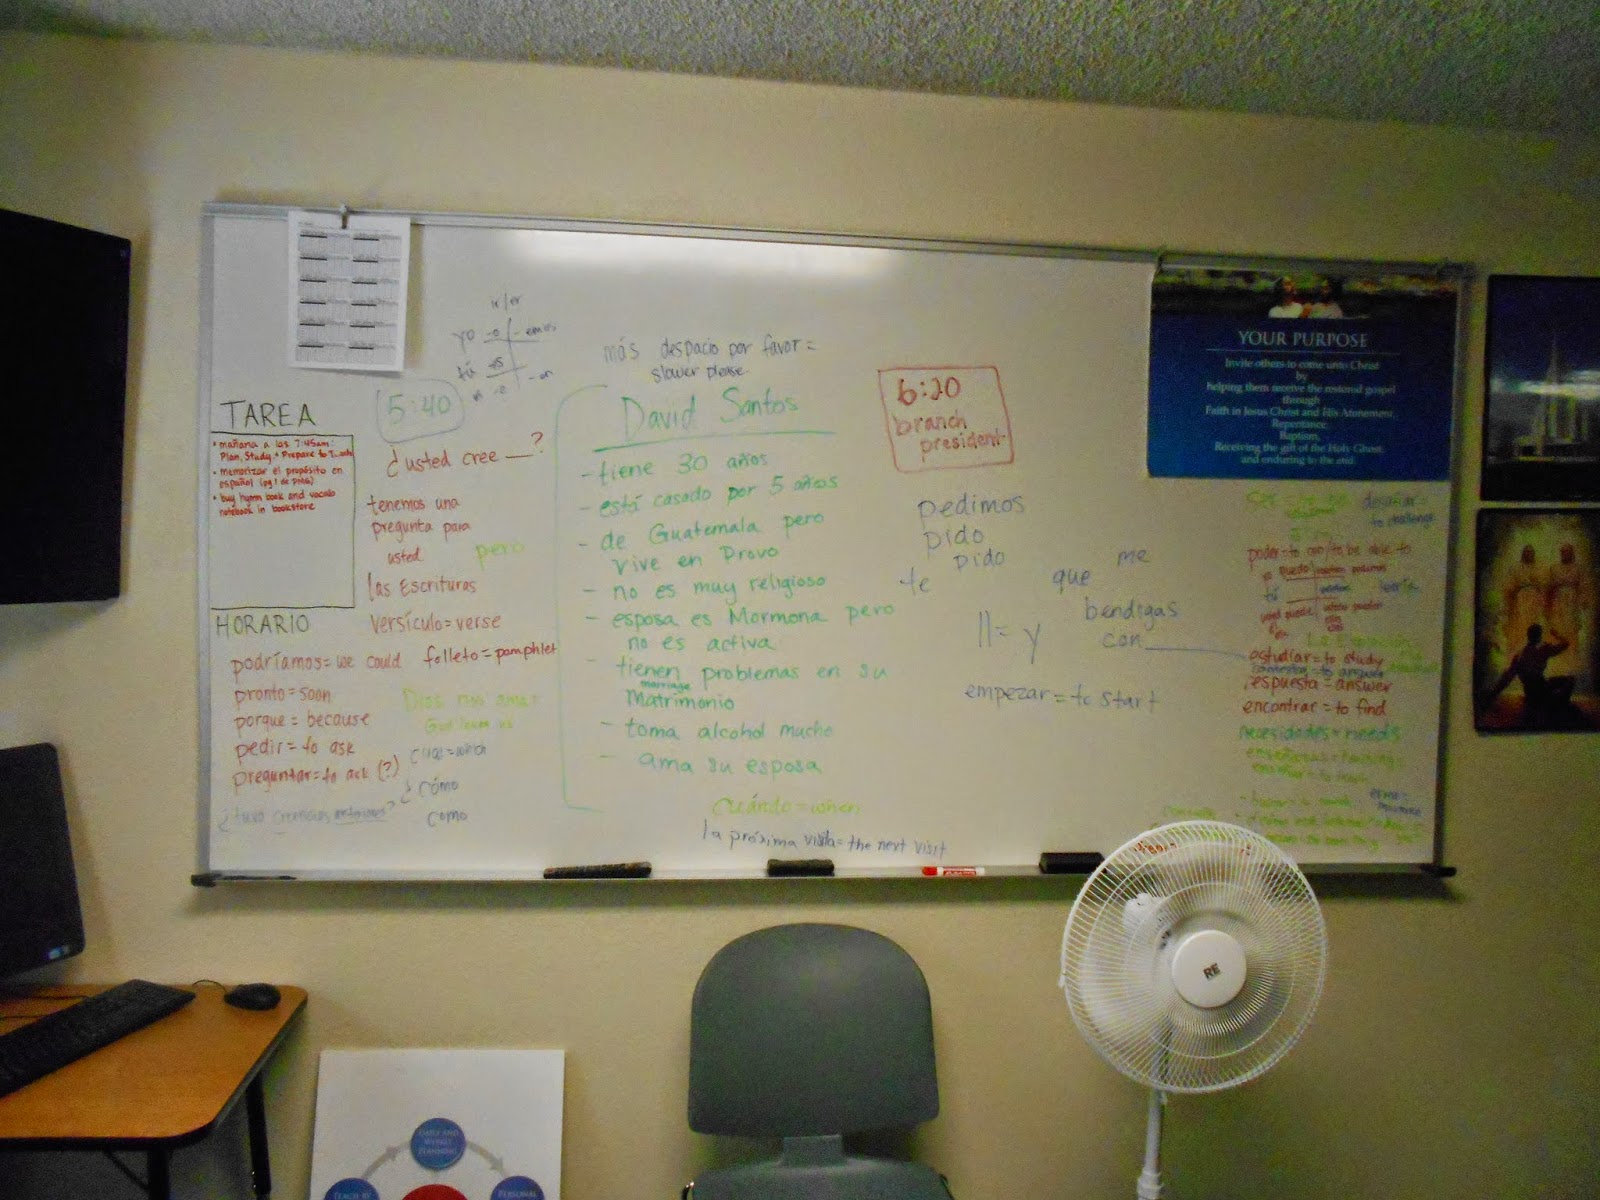 TAREA
• mañana a las 7:45am:
Plan, Study + Prepare to
• memorizar el propósito en
español (pg 1 de PMG)
• buy hymn book and vocab
notebook in bookstore
HORARIO
podríamos = we could
pronto = soon
porque = because
pedir = to ask
preguntar = to ask (?)
¿tuvo creencias anteriores?
ir/er
yo -o -emos
tú -es
-e -en
5:40
¿usted cree __?
tenemos una
pregunta para
usted
pero
las Escrituras
versículo = verse
folleto = pamphlet
Dios nos ama =
God loves us
cual = which
¿ cómo
como
más despacio por favor =
slower please
David Santos
- tiene 30 años
- está casado por 5 años
- de Guatemala pero
vive en Provo
- no es muy religioso
- esposa es Mormona pero
no es activa
- tienen problemas en su
marriage
Matrimonio
- toma alcohol mucho
- ama su esposa
cuándo = when
la próxima visita = the next visit
6:20
branch
president
pedimos
pido
pido
te que me
ll = y
bendigas
con
empezar = to start
YOUR PURPOSE
Invite others to come unto Christ
by
helping them receive the restored gospel
through
Faith in Jesus Christ and His Atonement,
Repentance,
Baptism,
Receiving the gift of the Holy Ghost,
and enduring to the end.
desafiar =
to challenge
poder = to can/to be able to
puedo
tú
estudiar = to study
contestar = to answer
respuesta = answer
encontrar = to find
necesidades = needs
RE
DAILY AND
WEEKLY
PLANNING
TEACH BY
PERSONAL